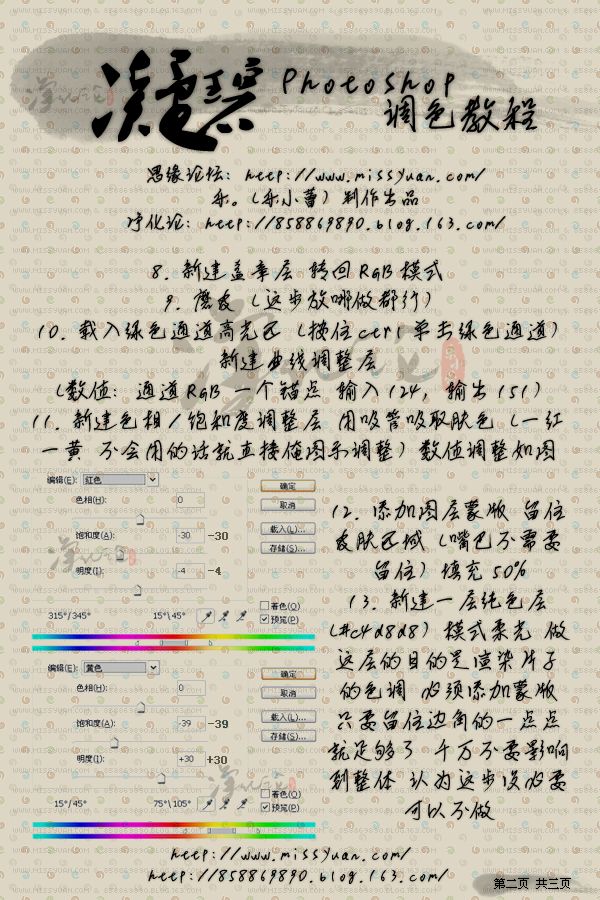 Photoshop
调色教程
思缘论坛：http://www.missyuan.com/
制作出品
http://858869890.blog.163.com/
8. 新建盖章层 转回RGB模式
9. 磨皮（这步放哪做都行）
10. 载入绿色通道高光区（按住ctrl单击绿色通道）
新建曲线调整层
（数值：通道RGB 一个锚点 输入124，输出151）
11. 新建色相/饱和度调整层 用吸管吸取肤色（一红
一黄 不会用的话就直接俺图示调整）数值调整如图
编辑(E): 红色
确定
色相(H): 0
取消
饱和度(A): -30 -30
载入(L)...
存储(S)...
明度(I): -4 -4
315°/345° 15°\45°
着色(O)
预览(P)
编辑(E): 黄色
确定
色相(H): 0
取消
饱和度(A): -39 -39
载入(L)...
存储(S)...
明度(I): +30 +30
15°/45° 75°\105°
着色(O)
预览(P)
12. 添加图层蒙版 留住
皮肤区域（嘴巴不需要
留住）填充50%
13. 新建一层纯色层
(#c4d8d8) 模式柔光 做
这层的目的是渲染片子
的色调 必须添加蒙版
只要留住边角的一点点
就足够了 千万不要影响
到整体 认为这步没必要
可以不做
http://www.missyuan.com/
http://858869890.blog.163.com/
第二页 共三页